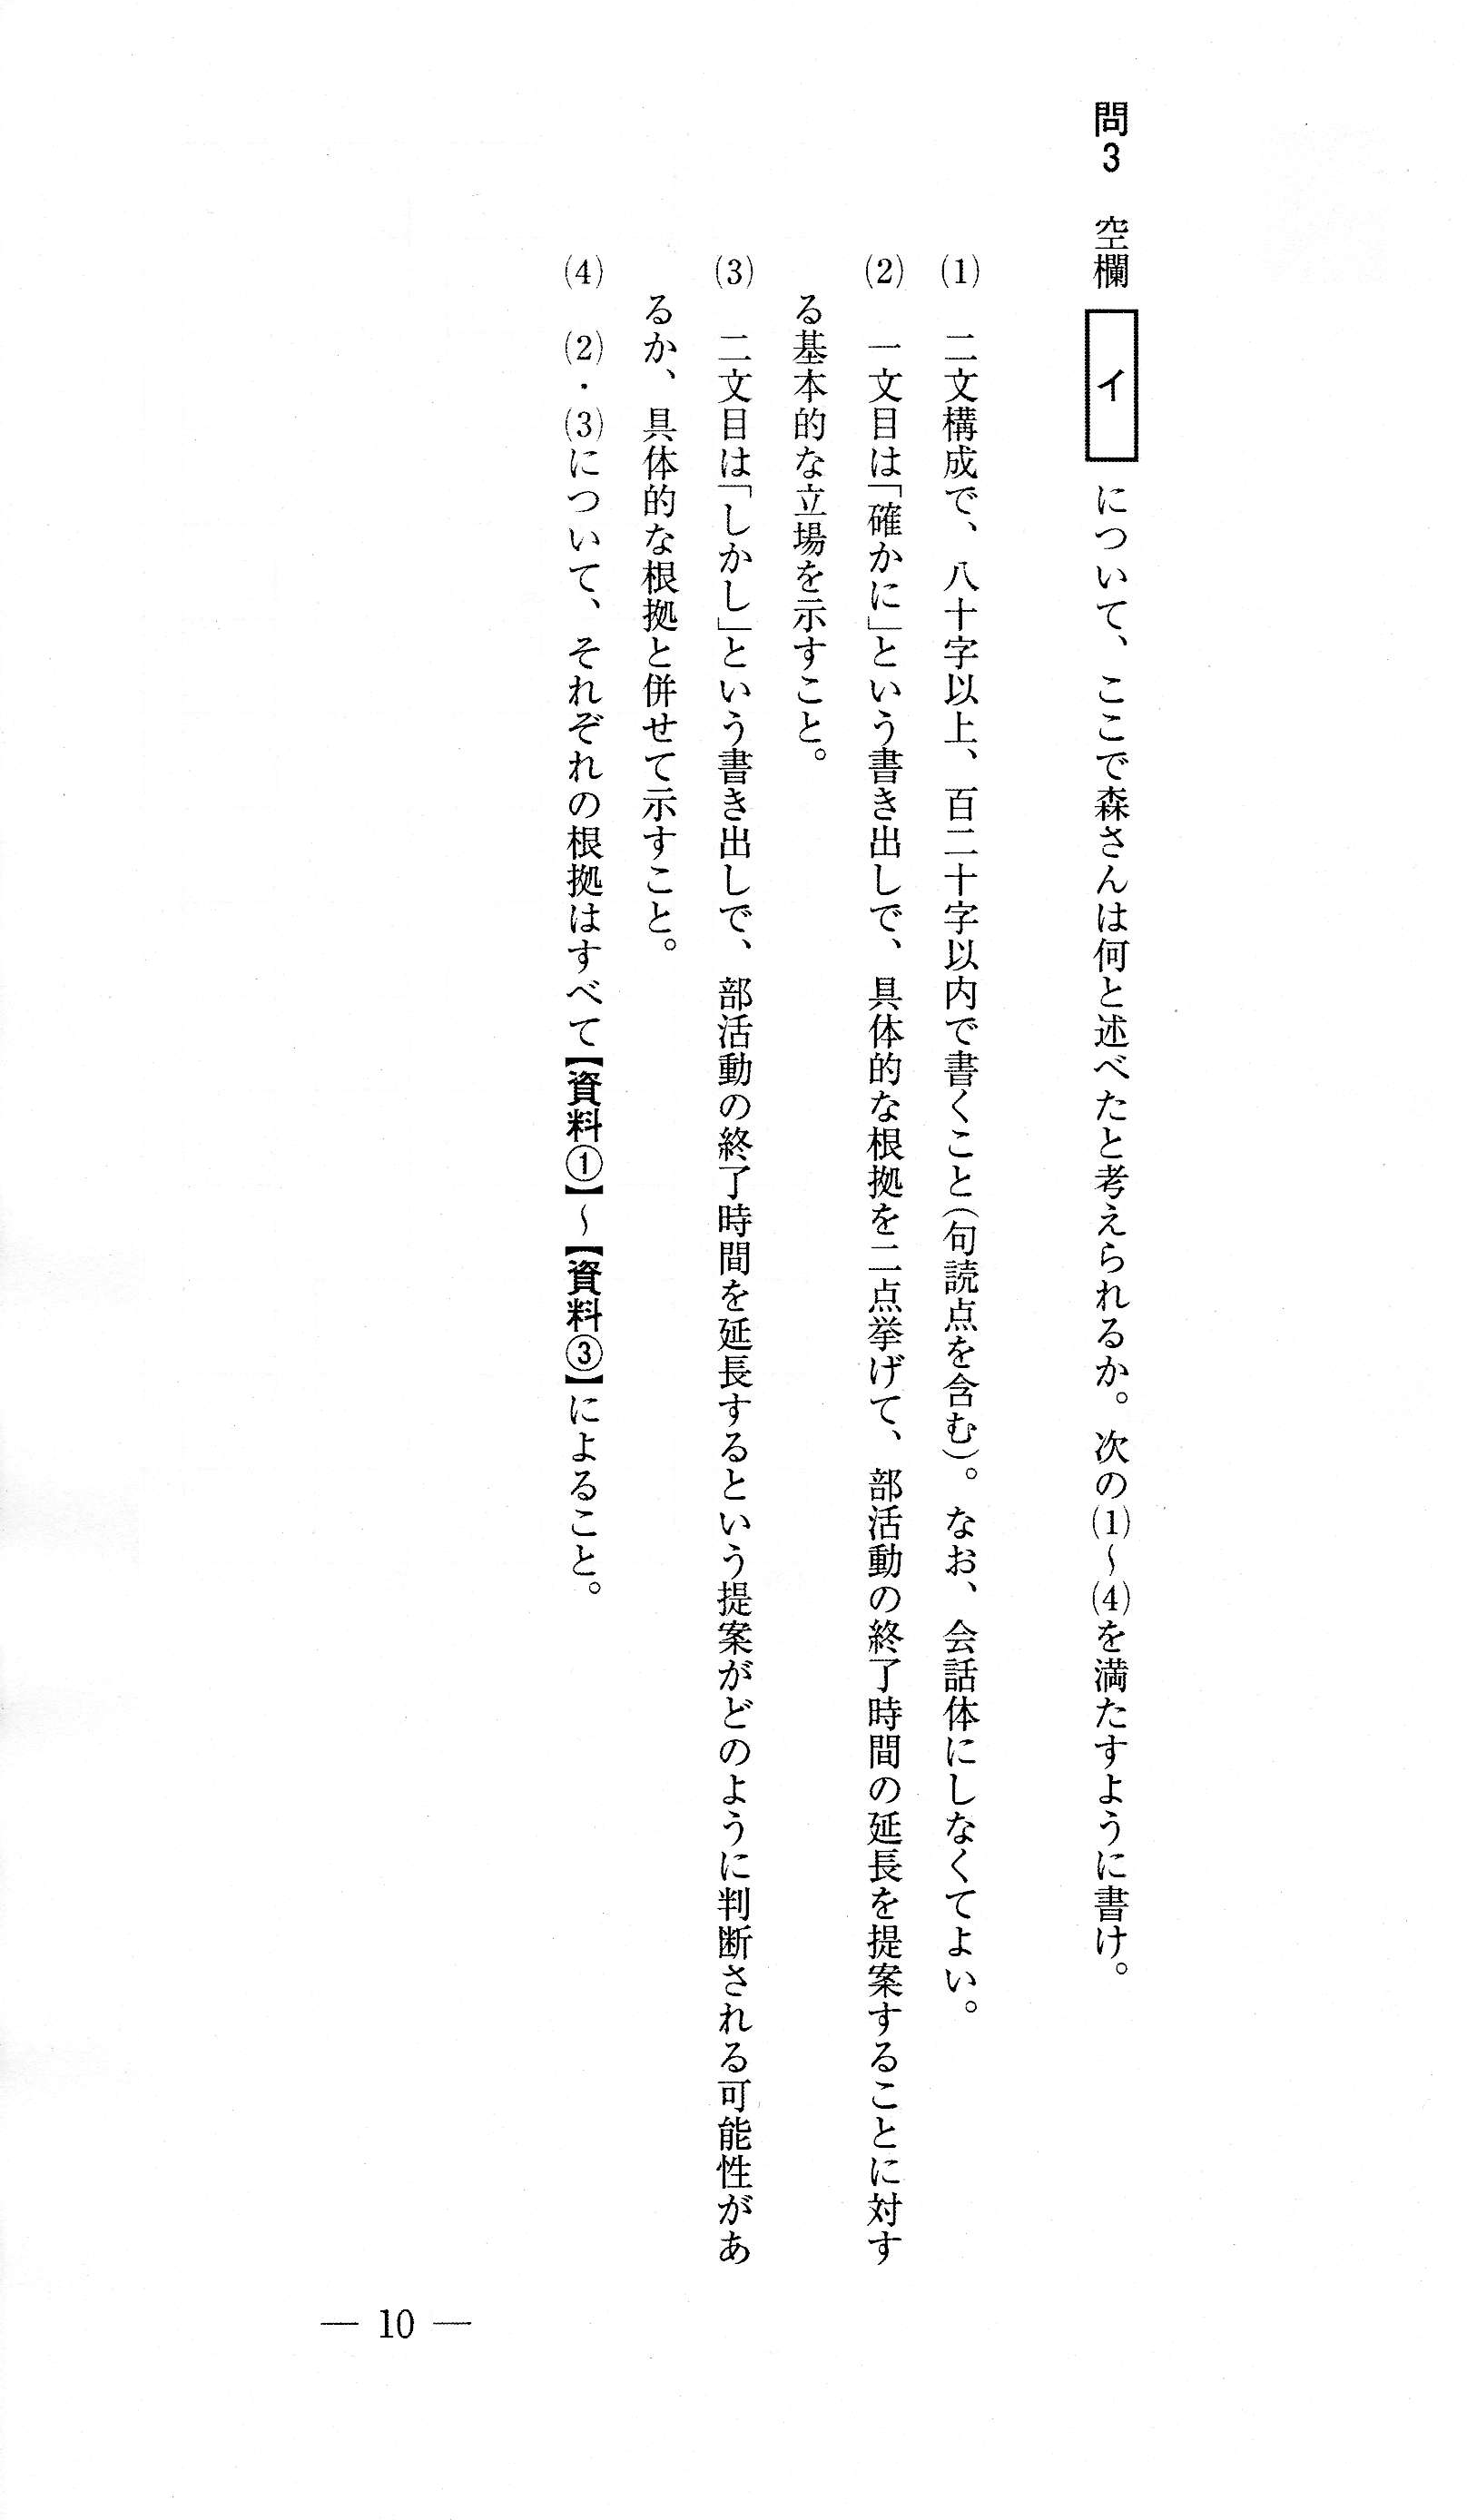 問3　空欄 イ について、ここで森さんは何と述べたと考えられるか。次の(1)～(4)を満たすように書け。
(1)　二文構成で、八十字以上、百二十字以内で書くこと(句読点を含む)。なお、会話体にしなくてよい。
(2)　一文目は「確かに」という書き出しで、具体的な根拠を二点挙げて、部活動の終了時間の延長を提案することに対す
る基本的な立場を示すこと。
(3)　二文目は「しかし」という書き出しで、部活動の終了時間を延長するという提案がどのように判断される可能性があ
るか、具体的な根拠と併せて示すこと。
(4)　(2)・(3)について、それぞれの根拠はすべて【資料①】～【資料③】によること。
— 10 —